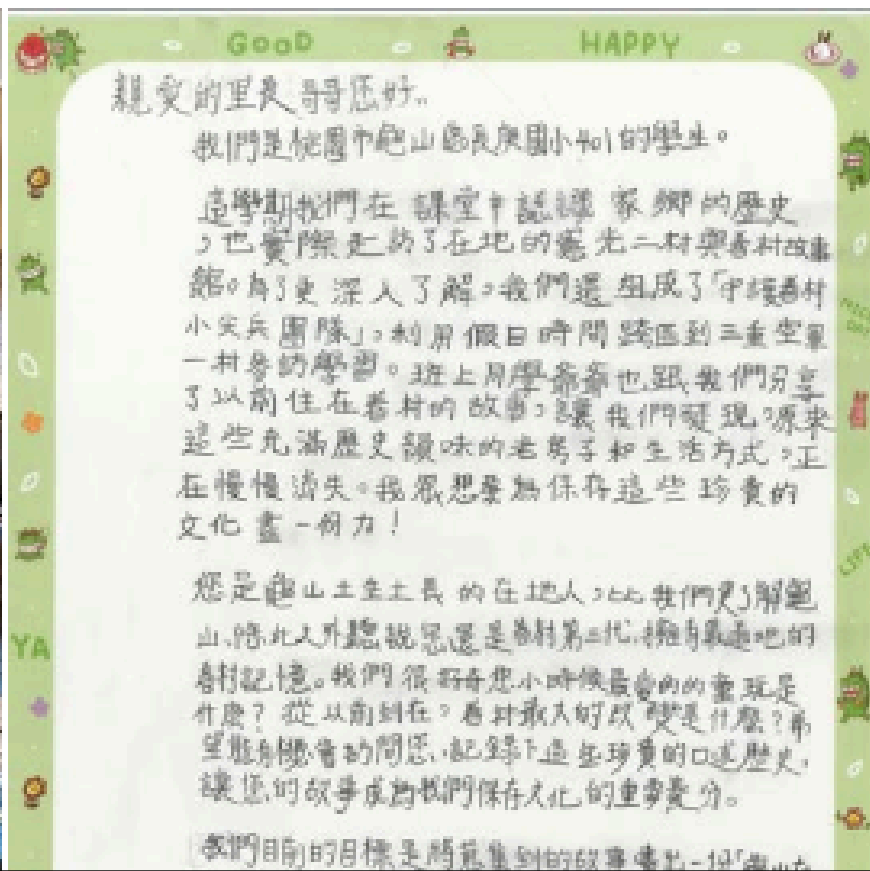 GOOD HAPPY
親愛的里長哥哥您好..
我們是桃園市龜山區長庚國小401的學生。
這學期我們在課堂中認識家鄉的歷史
，也實際走訪了在地的憲光二村與眷村故事
館。為了更深入了解，我們還組成了「守護眷村
小尖兵團隊」，利用假日時間跨區到三重空軍
一村參訪學習。班上同學爺爺也跟我們分享
了以前住在眷村的故事，讓我們發現，原來
這些充滿歷史韻味的老房子和生活方式，正
在慢慢消失。我很想要為保存這些珍貴的
文化盡一份力！
您是龜山土生土長的在地人，比我們更了解龜
山，除此之外聽說您還是眷村第二代，擁有最道地的
眷村記憶。我們很好奇您小時候最愛的的童玩是
什麼？從以前到在，眷村最大的改變是什麼？希
望能有機會訪問您，記錄下這些珍貴的口述歷史，
讓您的故事成為我們保存文化的重要分。
我們目前的目標是將蒐集到的故事
YA
NICE
DAY
LIFE